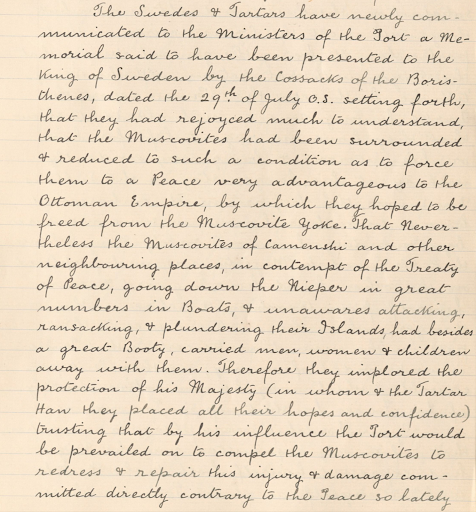 The Swedes & Tartars have newly com-
municated to the Ministers of the Port a Me-
morial said to have been presented to the
King of Sweden by the Cossacks of the Boris-
thenes, dated the 29th of July O.S. setting forth,
that they had rejoyced much to understand,
that the Muscovites had been surrounded
& reduced to such a condition as to force
them to a Peace very advantageous to the
Ottoman Empire, by which they hoped to be
freed from the Muscovite Yoke. That Never-
theless the Muscovites of Camenski and other
neighbouring places, in contempt of the Treaty
of Peace, going down the Nieper in great
numbers in Boats, & unawares attacking,
ransacking, & plundering their Islands, had besides
a great Booty, carried men, women & children
away with them. Therefore they implored the
protection of his Majesty (in whom & the Tartar
Han they placed all their hopes and confidence)
trusting that by his influence the Port would
be prevailed on to compel the Muscovites to
redress & repair this injury & damage com-
mitted directly contrary to the Peace so lately